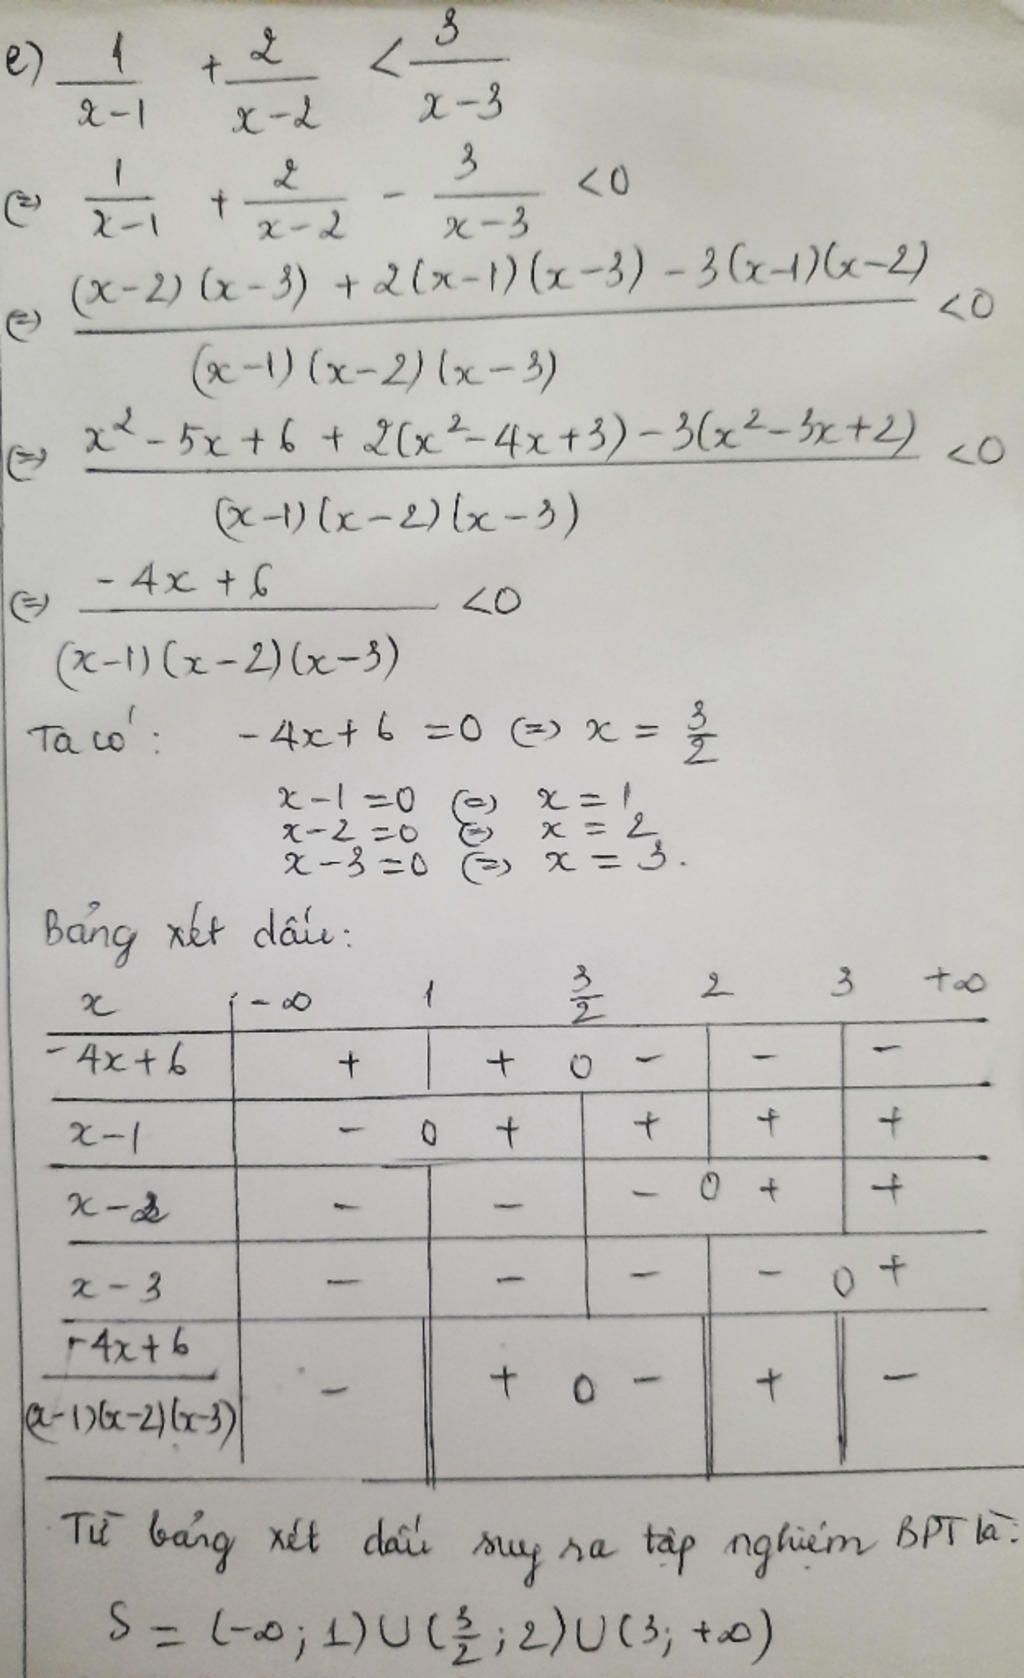 e) 1/(x-1) + 2/(x-2) < 3/(x-3)
(=) 1/(x-1) + 2/(x-2) - 3/(x-3) <0
(=) ((x-2)(x-3) + 2(x-1)(x-3) - 3(x-1)(x-2))/((x-1)(x-2)(x-3)) <0
(=) (x² - 5x + 6 + 2(x² - 4x + 3) - 3(x² - 3x + 2))/((x-1)(x-2)(x-3)) <0
(=) (-4x + 6)/((x-1)(x-2)(x-3)) <0
Ta có: -4x + 6 = 0 (=) x = 3/2
x-1 = 0 (=) x = 1
x-2 = 0 (=) x = 2
x-3 = 0 (=) x = 3.
Bảng xét dấu:
x | -∞ 1 3/2 2 3 +∞
-4x+6 | + | + 0 - | - | -
x-1 | - 0 + | + | + | +
x-2 | - | - | - 0 + | +
x-3 | - | - | - | - 0 +
(-4x+6)/((x-1)(x-2)(x-3)) | - || + 0 - || + || -
Từ bảng xét dấu suy ra tập nghiệm BPT là:
S = (-∞; 1) ∪ (3/2; 2) ∪ (3; +∞)